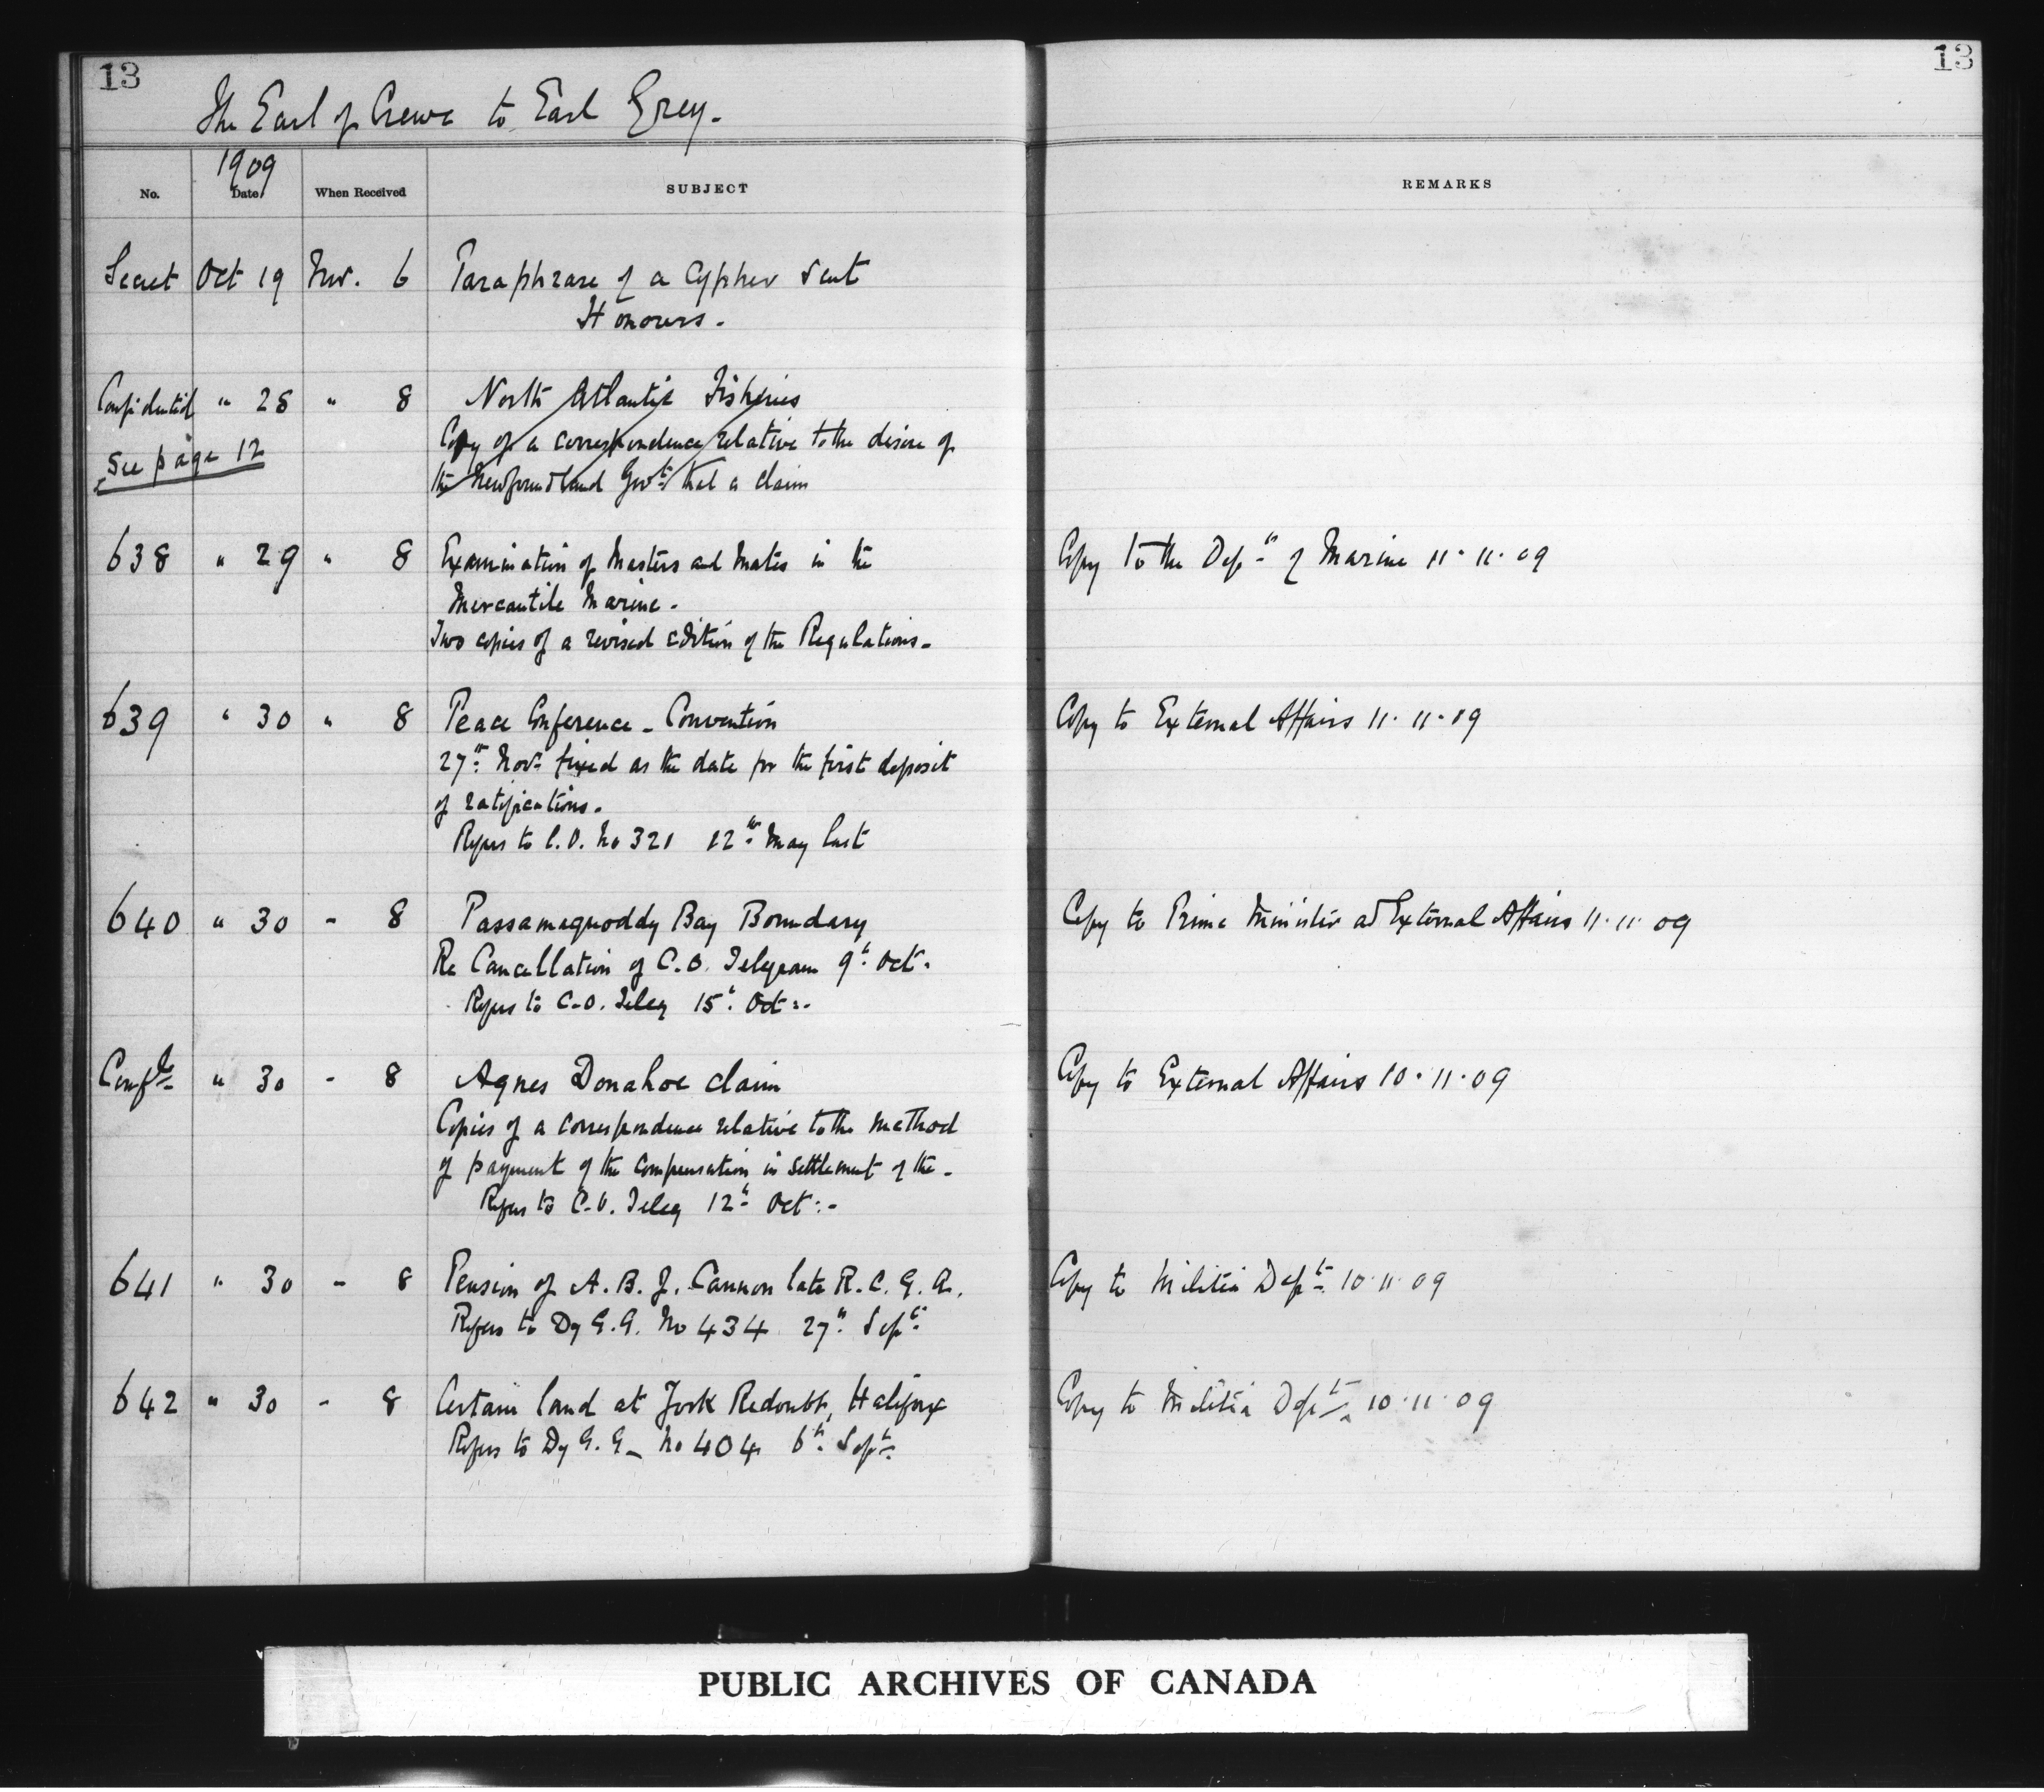 13
13
The Earl of Crewe to Earl Grey.
1909
No. Date When Received SUBJECT REMARKS
Secret Oct 19 Nov. 6 Paraphrase of a Cypher sent
Honours.
Confidential " 28 " 8 North Atlantic Fisheries
Copy of a correspondence relative to the desire of
See page 12
the Newfoundland Govt: that a claim
638 " 29 " 8 Examination of Masters and Mates in the Copy to the Dept of Marine 11.11.09
Mercantile Marine.
Two copies of a revised edition of the Regulations.
639 " 30 " 8 Peace Conference - Convention Copy to External Affairs 11.11.09
27th Novr fixed as the date for the first deposit
of ratifications.
Refers to C.O. No 321 12th May last
640 " 30 - 8 Passamaquoddy Bay Boundary Copy to Prime Minister and External Affairs 11.11.09
Re Cancellation of C.O. Telegram 9th Oct.
Refers to C.O. Teleg 15th Oct:.
Confdl " 30 - 8 Agnes Donahoe claim Copy to External Affairs 10.11.09
Copies of a correspondence relative to the method
of payment of the compensation in settlement of the.
Refers to C.O. Teleg 12th Oct:.
641 " 30 - 8 Pension of A. B. J. Cannon late R.C.G.A. Copy to Militia Dept. 10.11.09
Refers to Dy G.G. No 434 27th Sept
642 " 30 - 8 Certain land at York Redoubt, Halifax Copy to Militia Dept. 10.11.09
Refers to Dy G.G. No 404 6th Sept.
PUBLIC ARCHIVES OF CANADA